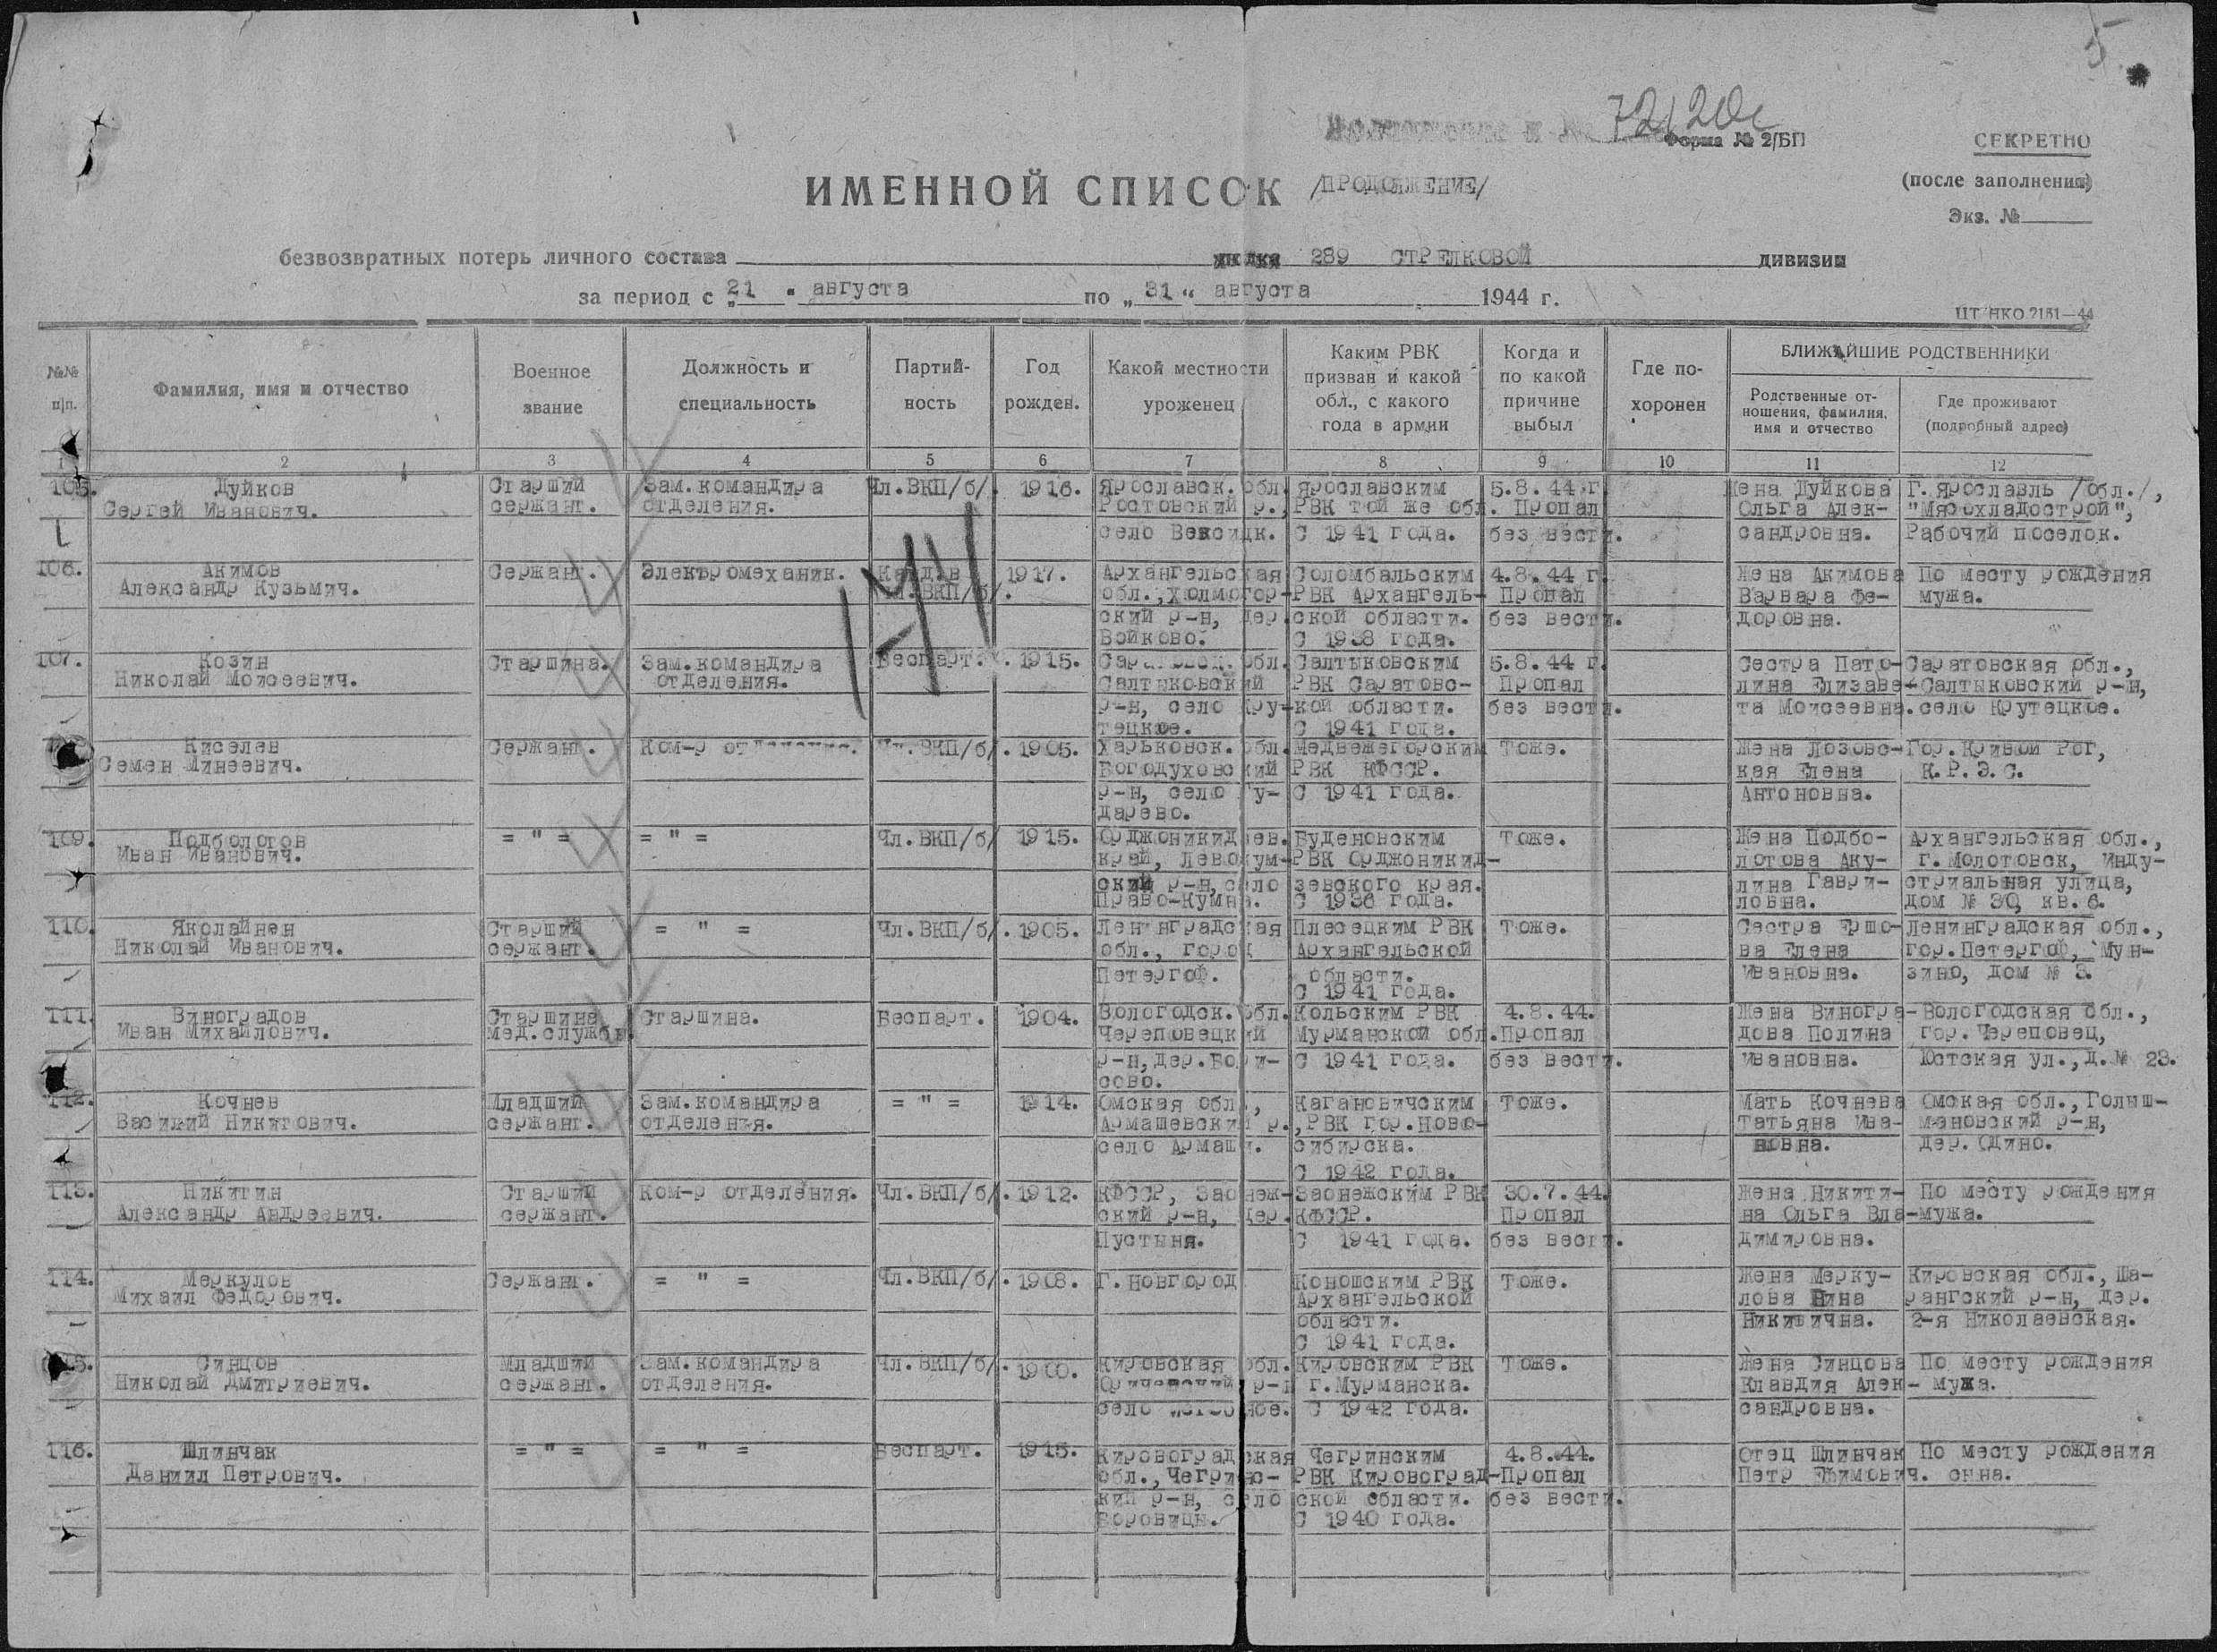 5
72120с
Форма № 2/БП
СЕКРЕТНО
(после заполнения)
Экз. №
ИМЕННОЙ СПИСОК /ПРОДОЛЖЕНИЕ/
безвозвратных потерь личного состава 289 СТРЕЛКОВОЙ дивизии
за период с „21" августа по „31" августа 1944 г.
ЦТ НКО 2151—44
№№ п/п. Фамилия, имя и отчество Военное звание Должность и специальность Партий-ность Год рожден. Какой местности уроженец Каким РВК призван и какой обл., с какого года в армии Когда и по какой причине выбыл Где по-хоронен БЛИЖАЙШИЕ РОДСТВЕННИКИ
Родственные от-ношения, фамилия, имя и отчество Где проживают (подробный адрес)
1 2 3 4 5 6 7 8 9 10 11 12
105. Дуйков Старший Зам.командира Чл.ВКП/б/. 1916. Ярославск.обл. Ярославским 5.8.44 г. Жена Дуйкова Г.Ярославль /обл./,
Сергей Иванович. сержант. отделения. Ростовский р., РВК той же обл. Пропал Ольга Алек- "Мясохладострой",
село Вексицк. С 1941 года. без вести. сандровна. Рабочий поселок.
106. Акимов Сержант. Электромеханик. Канд.в 1917. Архангельская Соломбальским 4.8.44 г. Жена Акимова По месту рождения
Александр Кузьмич. чл.ВКП/б/. обл.,Холмогор- РВК Архангель- Пропал Варвара Фе- мужа.
ский р-н, дер. ской области. без вести. доровна.
Войково. С 1938 года.
107. Козин Старшина. Зам.командира Беспарт. 1915. обл. Салтыковским 5.8.44 г. Сестра Пато- Саратовская обл.,
Николай Моисеевич. отделения. Салтыковский РВК Саратовс- Пропал лина Елизаве- Салтыковский р-н,
р-н, село Кру- кой области. без вести. та Моисеевна. село Крутецкое.
тецкое. С 1941 года.
Киселев Сержант. Ком-р отделения. Чл.ВКП/б/. 1905. Харьковск.обл. Медвежегорским Тоже. Жена Лозовс- Гор.Кривой Рог,
Семен Минеевич. Богодуховский РВК КФССР. кая Елена К.Р.Э.С.
р-н, село Гу- С 1941 года. Антоновна.
дарево.
109. Подболотов = " = = " = Чл.ВКП/б/ 1915. Орджоникидзев. Буденовским Тоже. Жена Подбо- Архангельская обл.,
Иван Иванович. край, Левокум- РВК Орджоникид- лотова Аку- г.Молотовск, Инду-
ский р-н, село зевского края. лина Гаври- стриальная улица,
Право-Кумка. С 1936 года. ловна. дом № 30, кв.6.
110. Яколайнен Старший = " = Чл.ВКП/б/. 1905. Ленинградская Плесецким РВК Тоже. Сестра Ершо- Ленинградская обл.,
Николай Иванович. сержант. обл., город Архангельской ва Елена гор.Петергоф, Мун-
Петергоф. области. Ивановна. зино, дом № 3.
С 1941 года.
111. Виноградов Старшина Старшина. Беспарт. 1904. Вологодск.обл. Кольским РВК 4.8.44. Жена Виногра- Вологодская обл.,
Иван Михайлович. мед.службы. Череповецкий Мурманской обл. Пропал дова Полина гор.Череповец,
р-н,дер.Бори- С 1941 года. без вести. Ивановна. Юстская ул.,д.№ 23.
сово.
112. Кочнев Младший Зам.командира = " = 1914. Омская обл., Кагановичским Тоже. Мать Кочнева Омская обл.,Голыш-
Василий Никитович. сержант. отделения. Армашевский р., РВК гор.Ново- Татьяна Ива- мановский р-н,
село Армаши. сибирска. новна. дер.Одино.
С 1942 года.
113. Никитин Старший Ком-р отделения. Чл.ВКП/б/. 1912. КФССР, Заонеж- Заонежским РВК 30.7.44. Жена Никити- По месту рождения
Александр Андреевич. сержант. ский р-н, дер. КФССР. Пропал на Ольга Вла- мужа.
Пустыня. С 1941 года. без вести. димировна.
114. Меркулов Сержант. = " = Чл.ВКП/б/. 1908. Г.Новгород Коношским РВК Тоже. Жена Мерку- Кировская обл., Ша-
Михаил Федорович. Архангельской лова Нина рангский р-н, дер.
области. Никитична. 2-я Николаевская.
С 1941 года.
Синцов Младший Зам.командира Чл.ВКП/б/. 1900. Кировская обл. Кировским РВК Тоже. Жена Синцова По месту рождения
Николай Дмитриевич. сержант. отделения. р-н г.Мурманска. Клавдия Алек- мужа.
село С 1942 года. сандровна.
116. Шлинчак = " = = " = Беспарт. 1915. Кировоградская Чегринским 4.8.44. Отец Шлинчак По месту рождения
Даниил Петрович. обл.,Чегринс- РВК Кировоград- Пропал Петр Ефимович. сына.
кий р-н, село ской области. без вести.
Боровицы. С 1940 года.